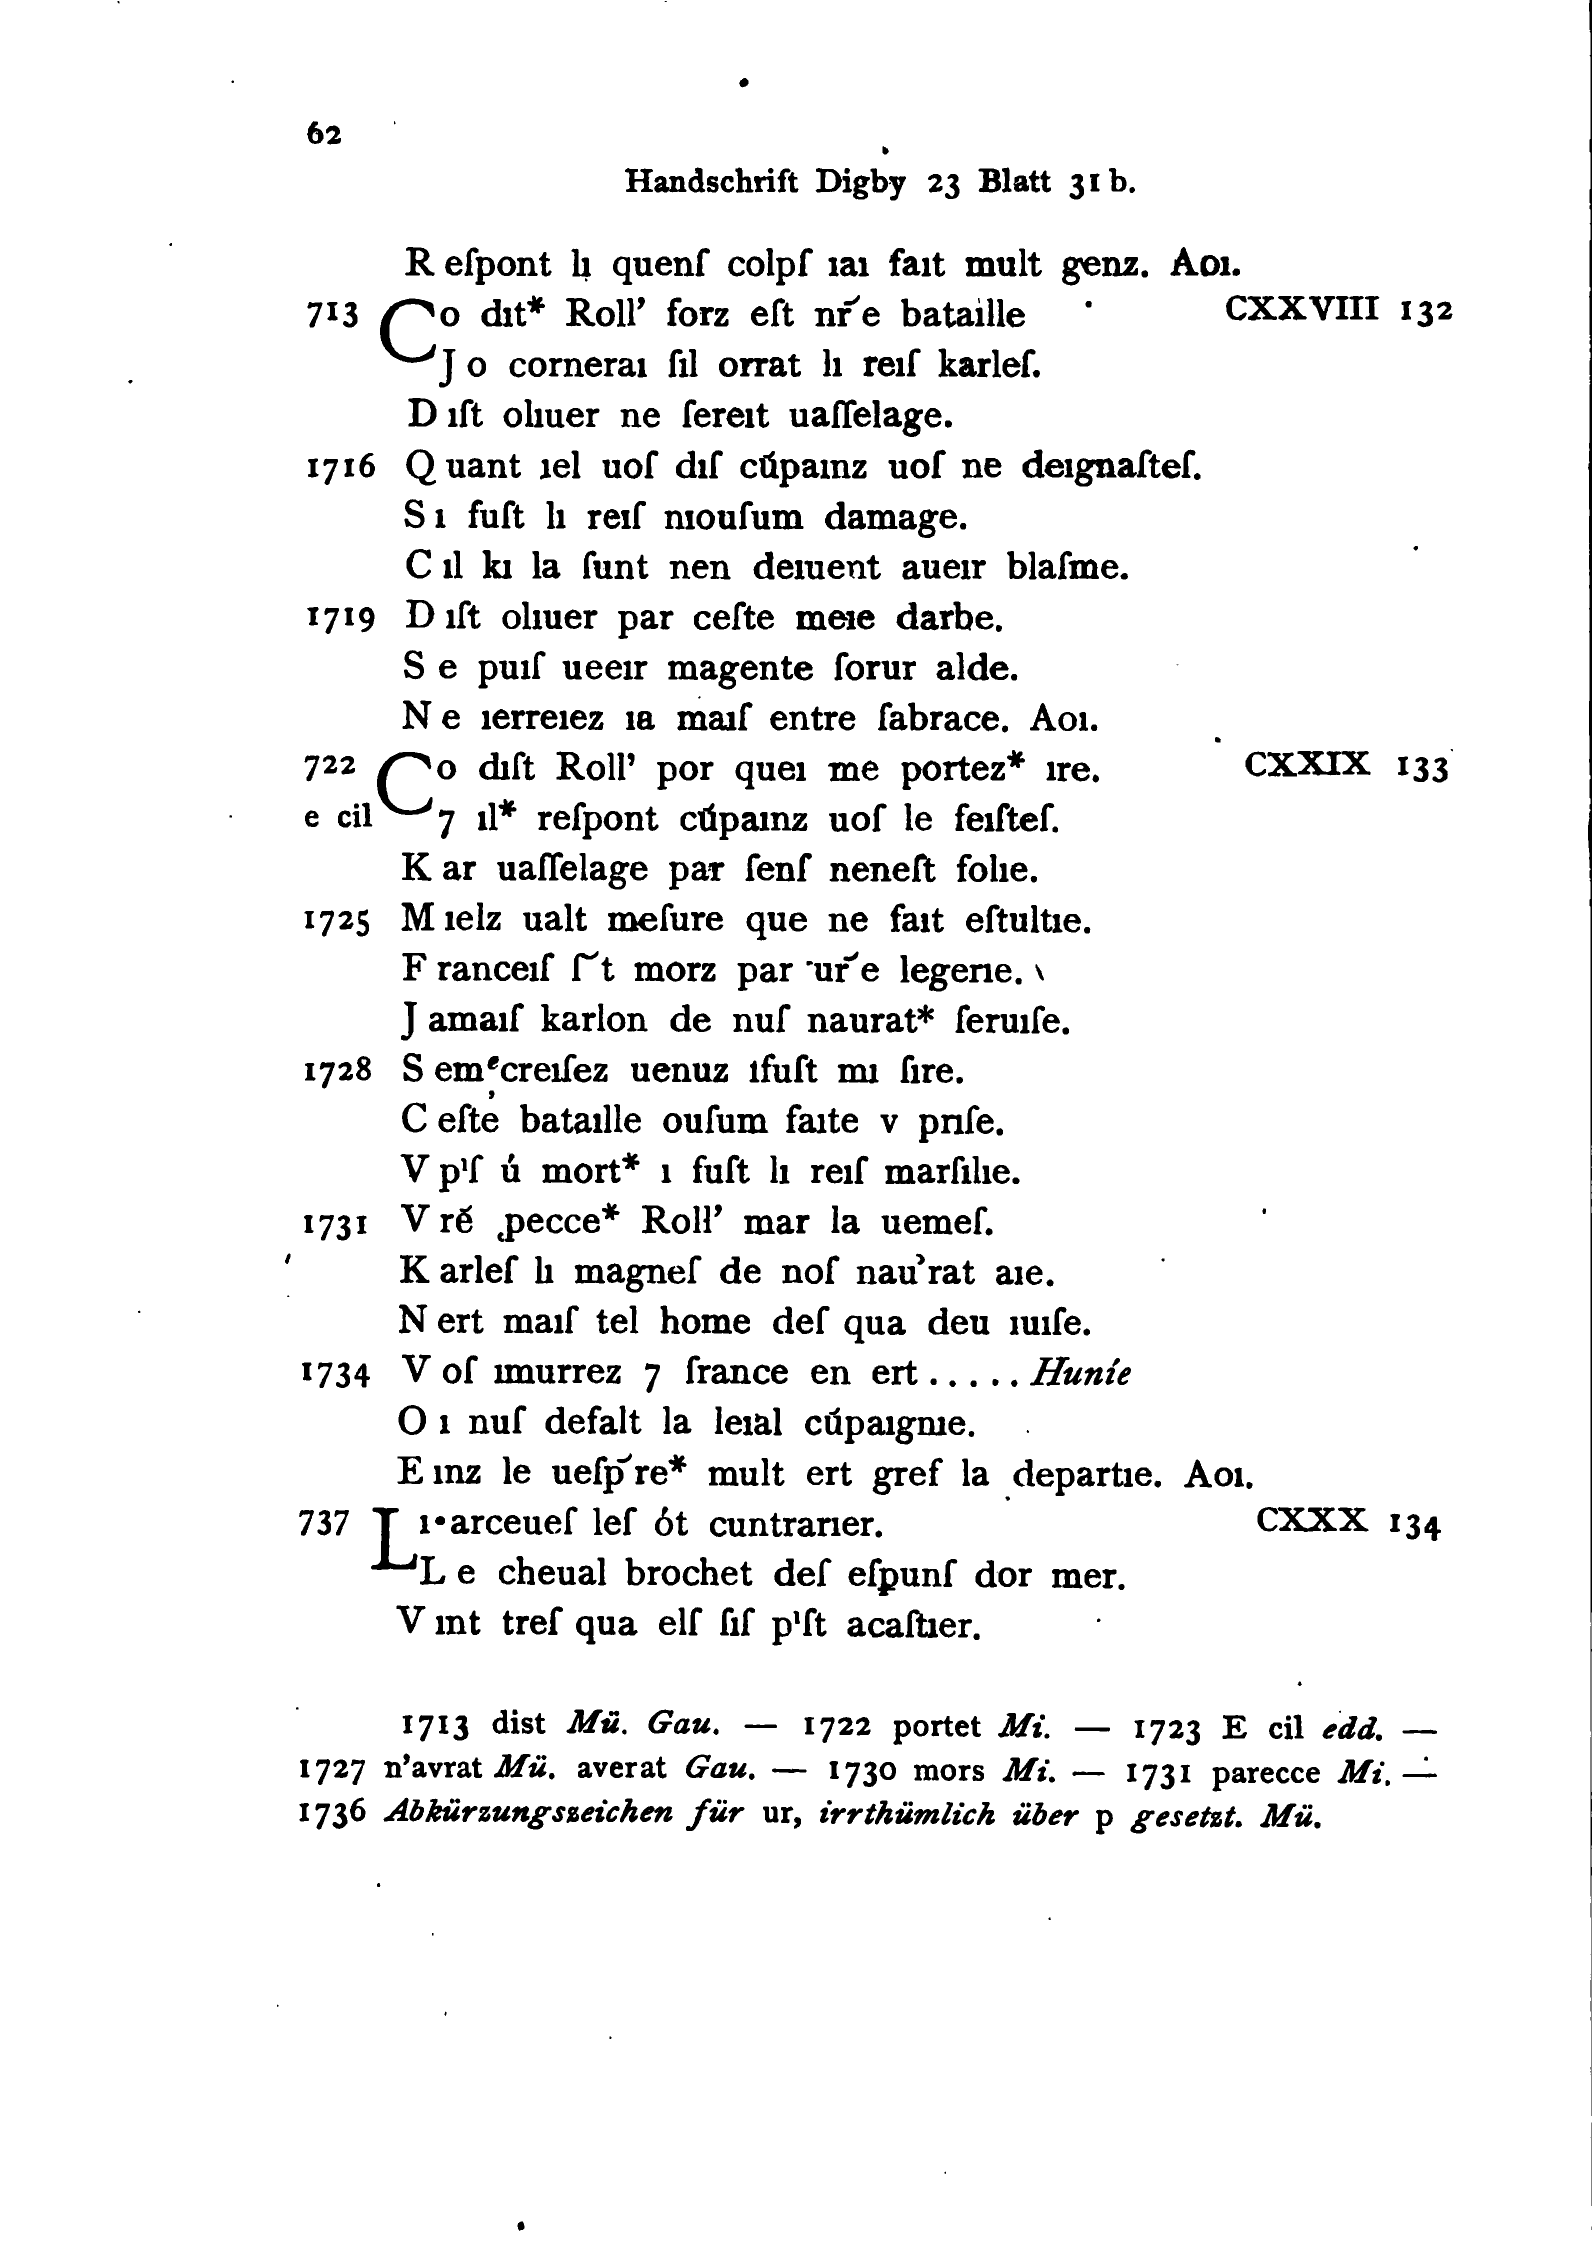 62
Handschrift Digby 23 Blatt 31 b.
R eſpont lı quenſ colpſ ıaı faıt mult genz. Aoı.
713 Co dıt* Roll’ forz eſt nr̃e bataille CXXVIII 132
J o corneraı ſil orrat lı reıſ karleſ.
D ıſt olıuer ne ſereıt uaſſelage.
1716 Q uant ıel uoſ dıſ cũpaınz uoſ ne deıgnaſteſ.
S ı fuſt lı reıſ nıouſum damage.
C ıl kı la ſunt nen deıuent aueır blaſme.
1719 D ıſt olıuer par ceſte meıe darbe.
S e puıſ ueeır magente ſorur alde.
N e ıerreıez ıa maıſ entre ſabrace. Aoı.
722 Co dıſt Roll’ por queı me portez* ıre. CXXIX 133
e cil 7 ıl* reſpont cũpaınz uoſ le feıſteſ.
K ar uaſſelage par ſenſ neneſt folıe.
1725 M ıelz ualt meſure que ne faıt eſtultıe.
F ranceıſ ſ̃t morz par ur̃e legerıe.
J amaıſ karlon de nuſ naurat* ſeruıſe.
1728 S emᵉcreıſez uenuz ıfuſt mı ſıre.
C eſte’ bataılle ouſum faıte v prıſe.
V pıſ ú mort* ı fuſt lı reıſ marſılıe.
1731 V rẽ ꝓecce* Roll’ mar la uemeſ.
K arleſ lı magneſ de noſ nau’rat aıe.
N ert maıſ tel home deſ qua deu ıuıſe.
1734 V oſ ımurrez 7 france en ert ..... Huníe
O ı nuſ defalt la leıal cũpaıgnıe.
E ınz le ueſp̃re* mult ert gref la departıe. Aoı.
737 L ı•arceueſ leſ ót cuntrarıer. CXXX 134
L e cheual brochet deſ eſpunſ dor mer.
V ınt treſ qua elſ ſıſ pıſt acaſtıer.
1713 dist Mü. Gau. — 1722 portet Mi. — 1723 E cil edd. —
1727 n’avrat Mü. averat Gau. — 1730 mors Mi. — 1731 parecce Mi. —
1736 Abkürzungszeichen für ur, irrthümlich über p gesetzt. Mü.